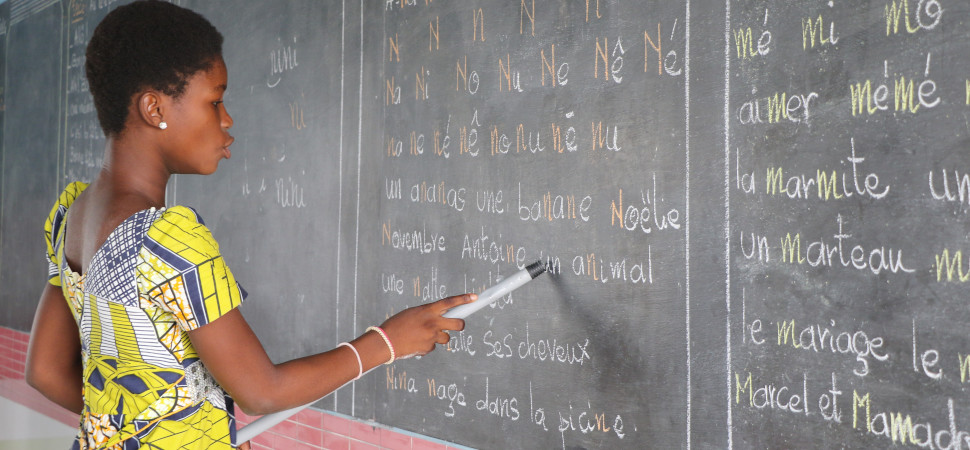 nini
ni
i nini
N N N N
N N N N N N N
Na Ni No Nu Ne Nê Né
na ne né nê no nu nē nu
un ananas une banane Noëlie
Novembre Antoine un animal
une natte
ses cheveux
Nina nage dans la picine.
mé mi mo
aimer mémé
la marmite un
un marteau m
le mariage le m
Marcel et Mamadou